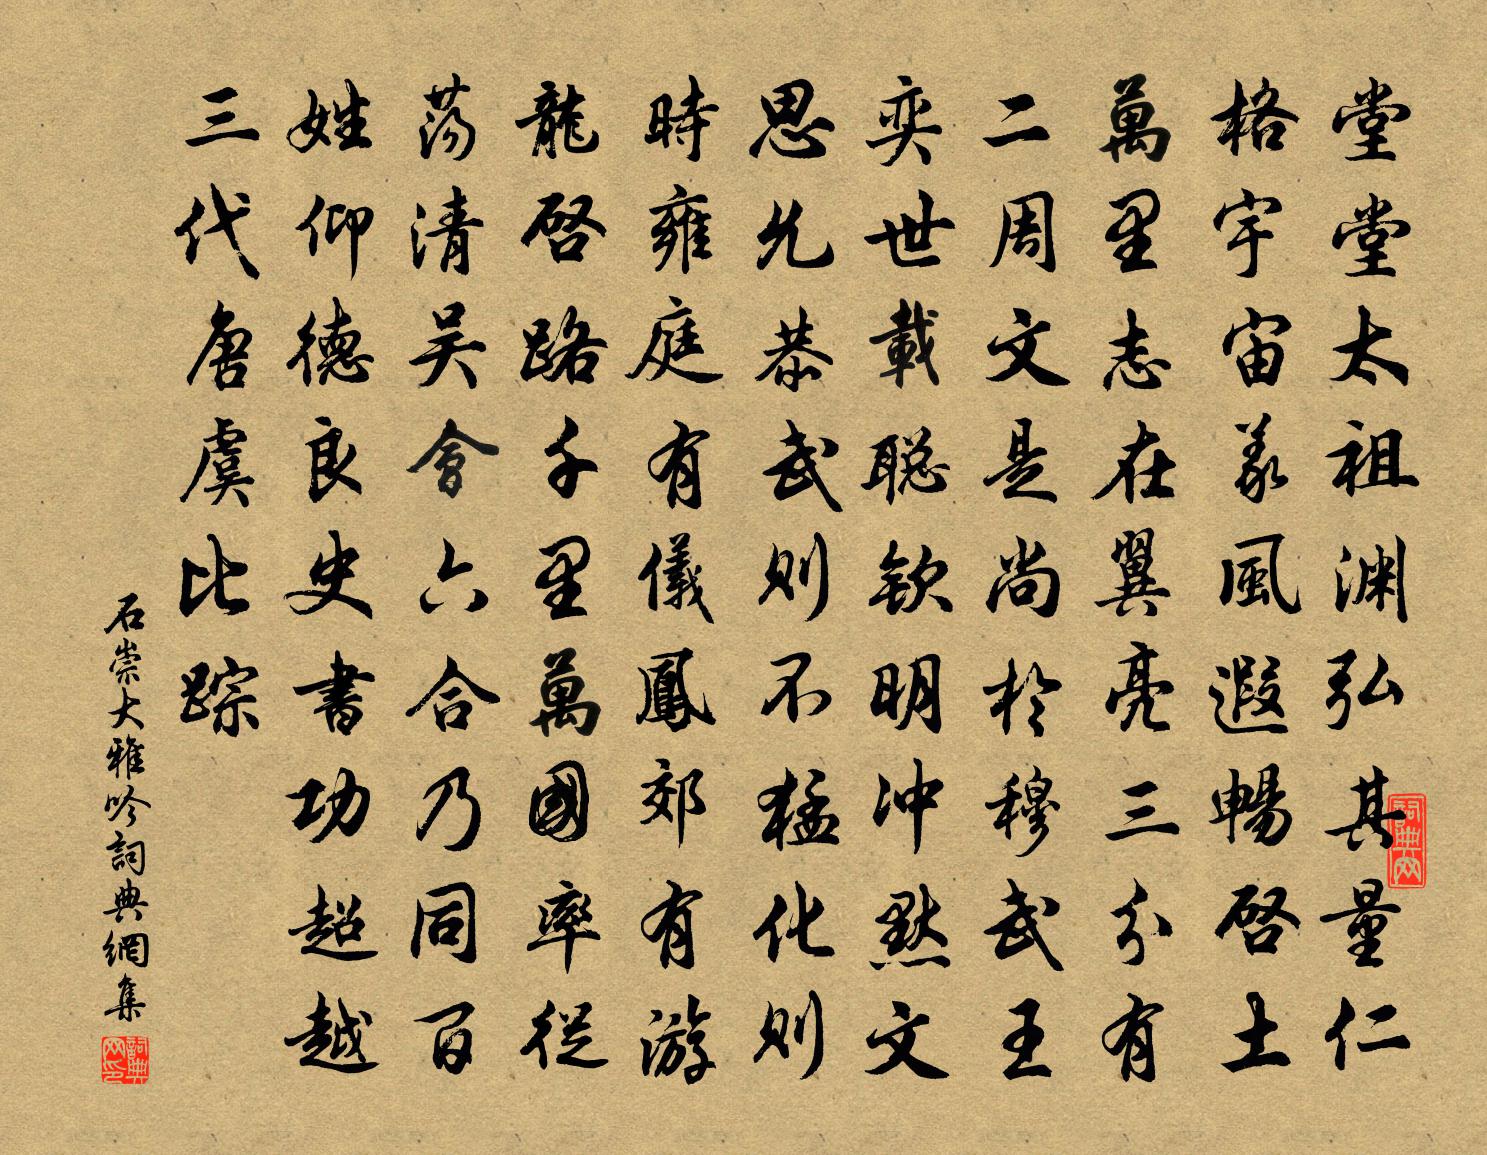 堂堂太祖渊弘其量仁
格宇宙義風遐暢啓土
萬里志在翼亮三分有
二周文是尚於穆武王
奕世載聪欽明冲默文
思允恭武则不猛化则
時雍庭有儀鳳郊有游
龍啓路千里萬國率從
荡清吴會六合乃同百
姓仰德良史書功超越
三代唐虞比踪
石崇大雅吟詞典網集
詞典网
詞典网印